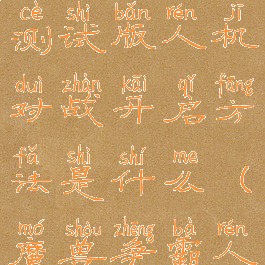 cè shì bǎn rén jī
测试版人机
duì zhàn kāi qǐ fāng
对战开启方
fǎ shì shí me
法是什么（
mó shòu zhēng bà rén
魔兽争霸人